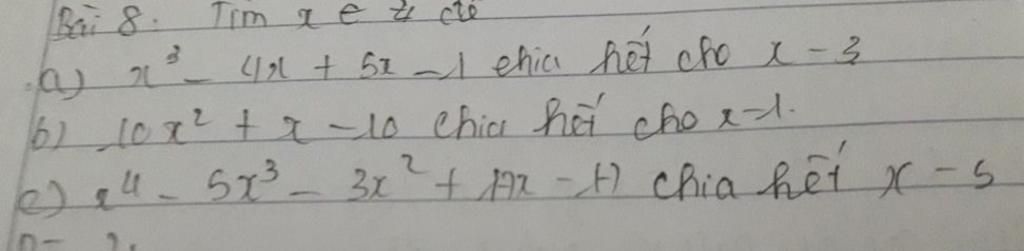 Bài 8: Tìm x ∈ Z để
a) x³ - 4x + 5x - 1 chia hết cho x - 3
b) 10x² + x - 10 chia hết cho x-1.
c) x⁴ - 5x³ - 3x² + 17x - 17 chia hết x - 5